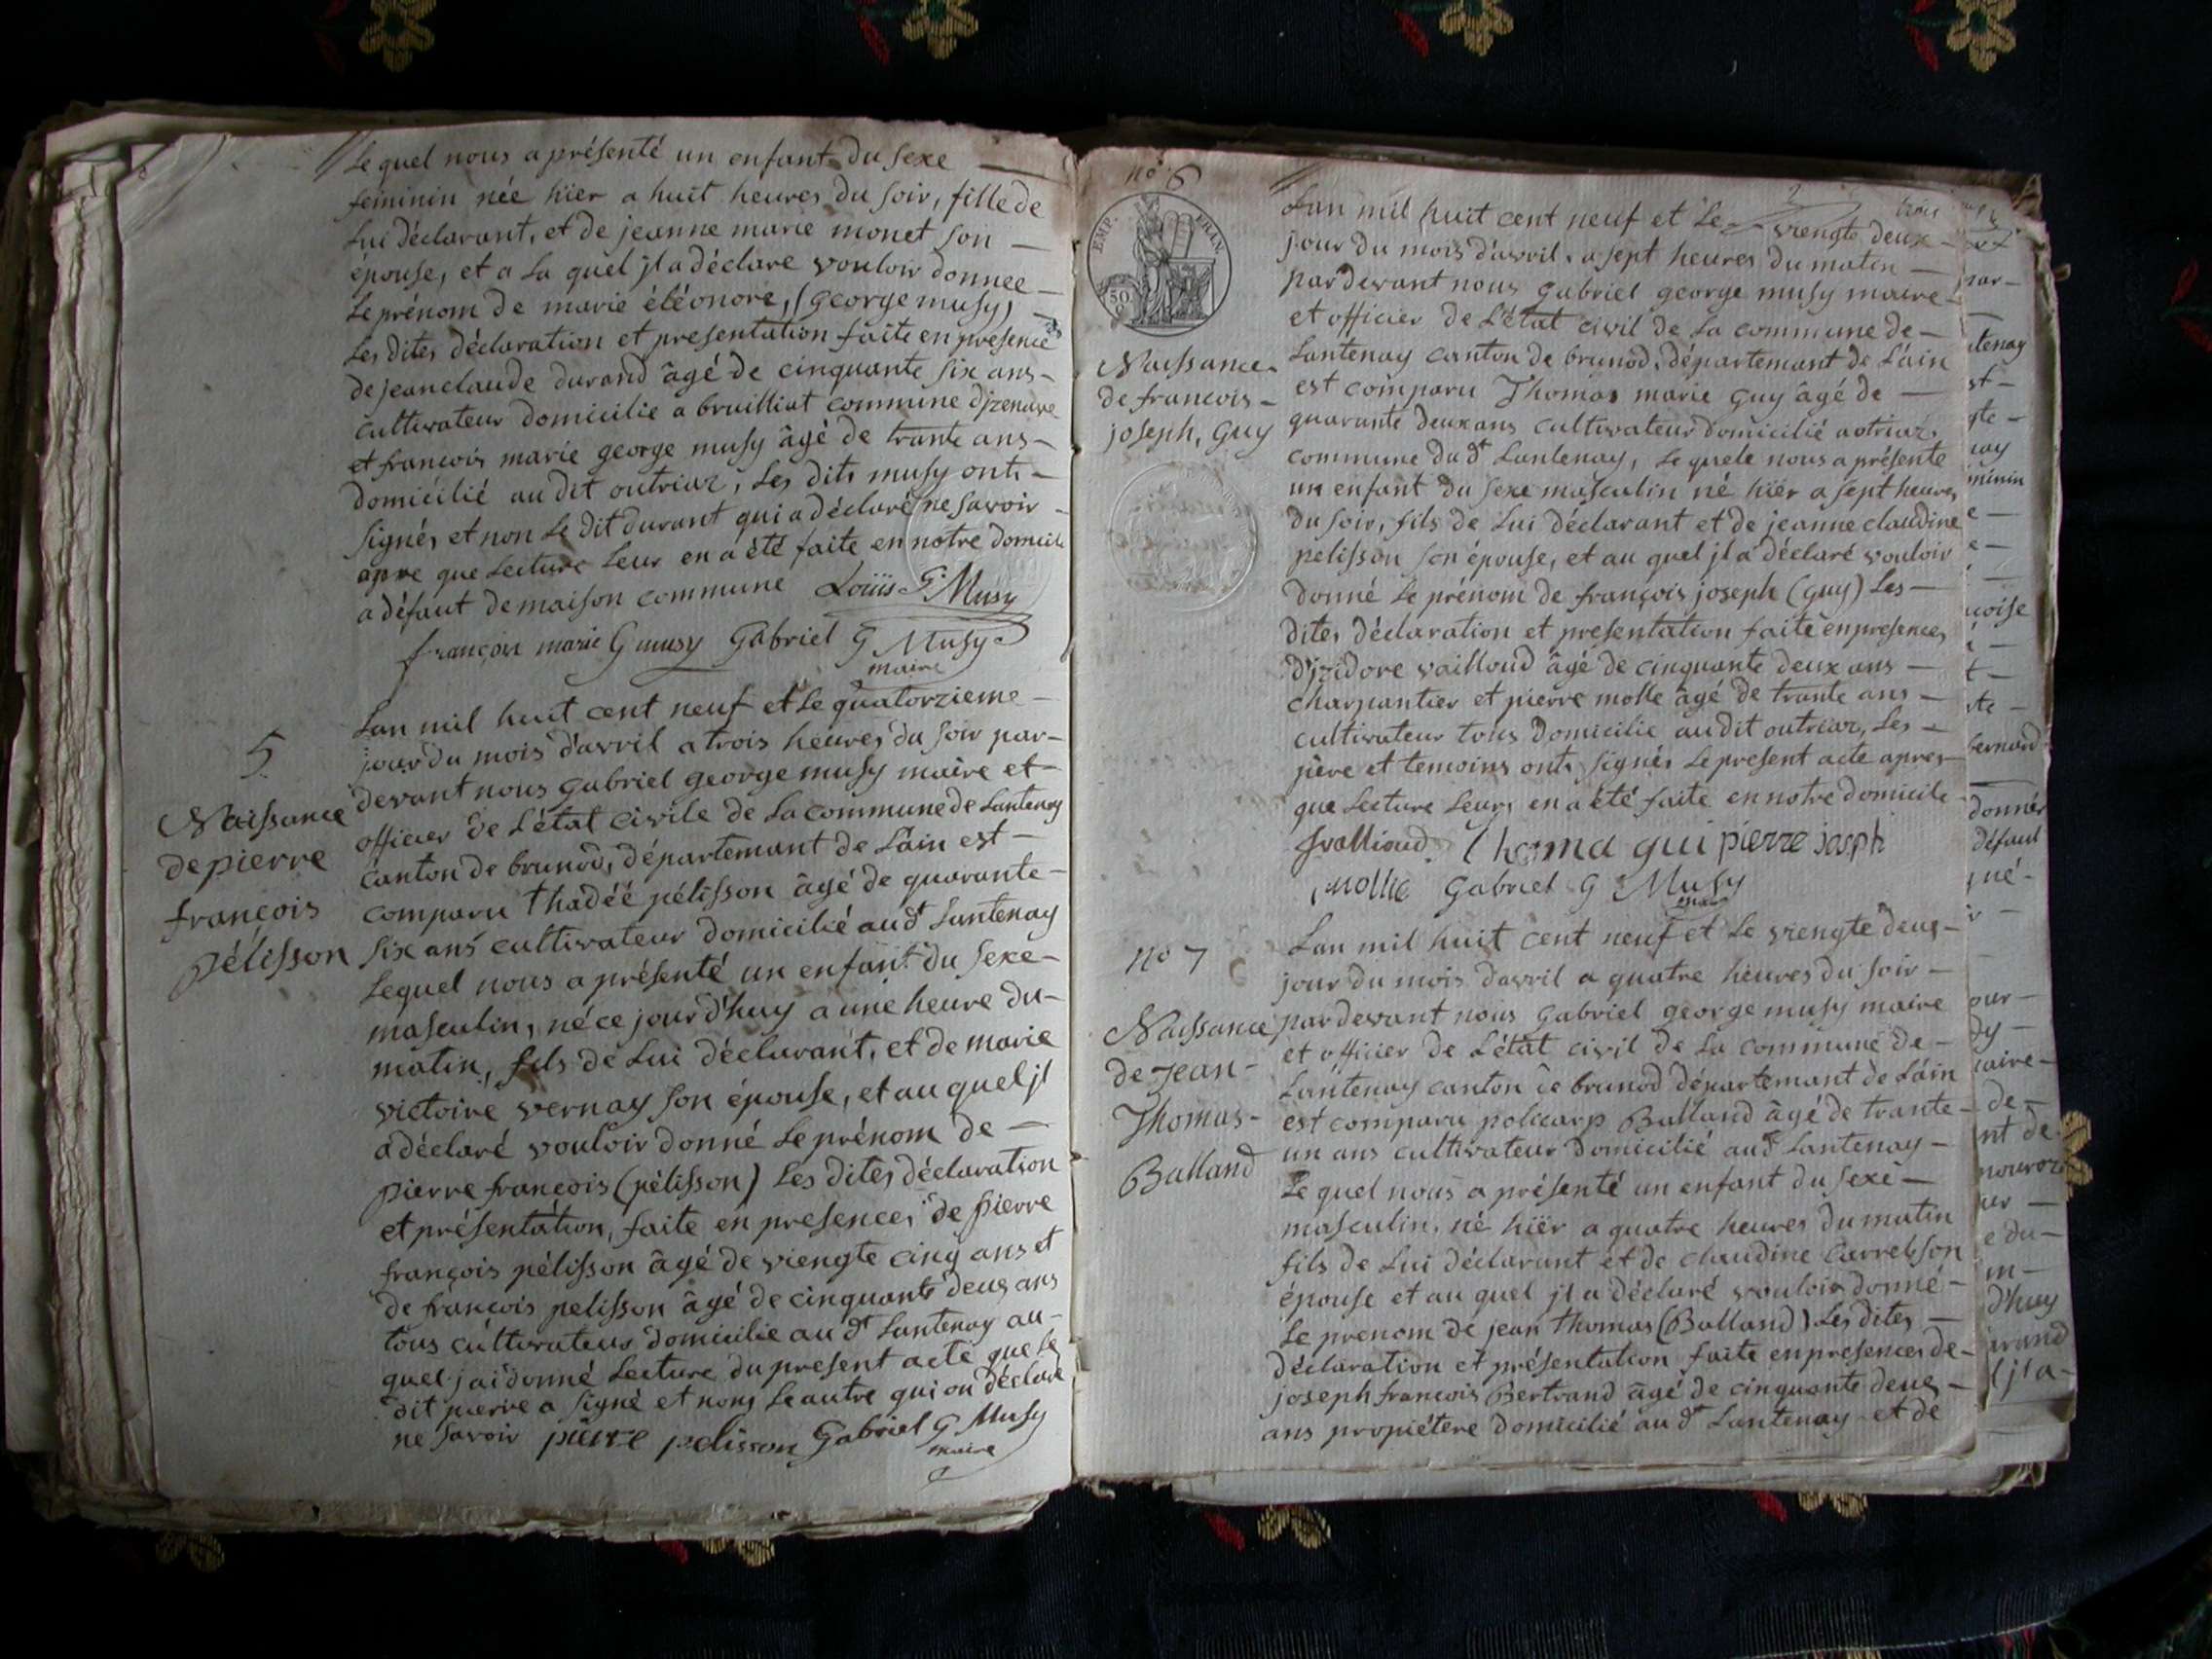 Le quel nous a présenté un enfant du sexe —
féminin née hïer a huit heures du soir, fille de
Lui déclarant, et de jeanne marie monet son —
épouse, et a La quel jl a déclare vouloir donnee —
Le prénom de marie éléonore, (george musy)
Les dites déclaration et presentation faite en presences
de jean claude durand âgé de cinquante six ans -
cultivateur domicilie a bruilliat commune djzenave
et francois marie george musy âgé de trante ans -
domicilié au dit outriaz, Les dits musy onts -
signés et non Le dit durant qui a déclaré ne savoir -
apre que Lecture Leur en a été faite en notre domicile
a défaut de maison commune Louis G Musy
françois marie G musy Gabriel G Musy
maire
5
Naissance
de pierre
françois
Pélisson
Lan mil huit cent neuf et Le quatorzieme -
jour du mois d'avril a trois heures du soir par -
devant nous gabriel george musy maire et -
officier de L'état civile de La commune de Lantenay
canton de brunod, département de L'ain est —
comparu thadéé pélisson âgé de quarante -
six ans cultivateur domicilié au dt Lantenay
Lequel nous a présenté un enfant du sexe -
masculin, né ce jour d'huy a une heure du -
matin, fils de Lui déclarant, et de marie
victoire vernay son épouse, et au quel jl
a déclaré vouloir donné Le prénom de —
pierre françois (pélisson) Les dites déclaration
et présentation, faite en presences de pierre
françois pélisson âgé de viengte cinq ans et
de françois pelisson âgé de cinquante deus ans
tous cultivateur domicilie au dt Lantenay au -
quel j'ai donné Lecture du present acte que Le
dit pierre a signé et nons Le autre qui on déclaré
ne savoir pierre pelisson Gabriel G Musy
maire
no 6
EMP. FRAN.
50
Naissance
de francois -
joseph, Guy
Lan mil huit cent neuf et Le viengte deux -
jour du mois d'avril, a sept heures du matin —
par devant nous gabriel george musy maire -
et officier de L'état civil de La commune de -
Lantenay canton de brunod, département de L'ain
est comparu Thomas marie guy âgé de —
quarante deux ans cultivateur domicilié aotriaz,
commune du dt Lantenay, Le quele nous a présente
un enfant du sexe masculin né hïer a sept heures
du soir, fils de Lui déclarant et de jeanne claudine
pelisson son épouse, et au quel jl a déclaré vouloir
donné Le prénom de françois joseph (guy) Les —
dites déclaration et presentation faite en presences
d'jzidore vailloud âgé de cinquante deux ans —
charpantier et pierre molle âgé de trante ans -
cultivateur tous domicilie audit outriaz, Les -
père et temoins onts signés Le present acte apres
que Lecture Leurs en a été faite en notre domicile
Thoma gui pierre josph
mollie Gabriel G Musy
maire
no 7
Naissance
de Jean -
Thomas -
Balland
Lan mil huit cent neuf et Le viengte deus -
jour du mois d'avril a quatre heures du soir -
par devant nous gabriel george musy maire
et officier de L'état civil de La commune de -
Lantenay canton de brunod département de L'ain
est comparu policarp Balland âgé de trante -
un ans cultivateur domicilié au dt Lantenay -
Le quel nous a présenté un enfant du sexe -
masculin, né hïer a quatre heures du matin
fils de Lui déclarant et de claudine Carrel son
épouse et au quel jl a déclaré vouloir donné -
Le prenom de jean thomas (Balland) Les dites —
déclaration et présentation faite en presences de -
joseph francois Bertrand âgé de cinquante deus -
ans propiétere domicilié au dt Lantenay et de